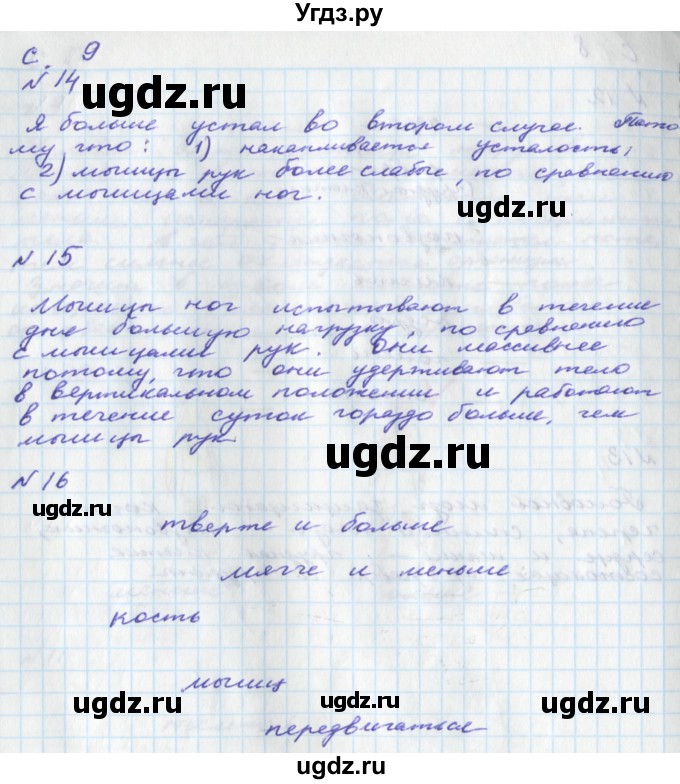 Угдз.ру
с. 9
N 14
Я больше устал во втором случае. Пото
му что: 1) накапливается усталость;
2) мышцы рук более слабые, по сравнению
с мышцами ног.
ugdz.ru
ugdz.ru
N 15
Мышцы ног испытывают в течение
дня большую нагрузку, по сравнению
с мышцами рук. Они массивнее
потому, что они удерживают тело
в вертикальном положении и работают
в течение суток гораздо больше, чем
мышцы рук
ugdz.ru
N 16
ugdz.ru
тверже и больше
мягче и меньше
ugdz.ru
кость
мышц
ugdz.ru
ugdz.ru
ugdz.ru
передвигаться
ugdz.ru